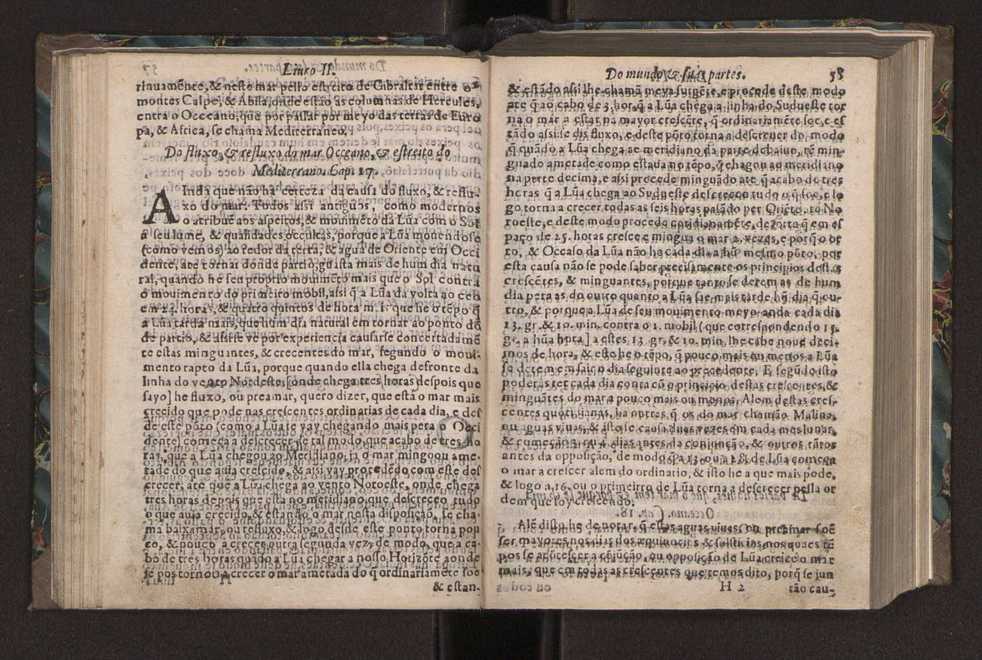 Liuro II.
rinuamẽnte, & neste mar pello estreito de Gibraltar entre os
montes Calpe, & Abila, onde estão as columnas de Hercules,
entra o Occeano, que por passar por meyo das terras de Euro
pa, & Africa, se chama Mediterraneo.
Do fluxo, & refluxo do mar Occeano, & estreito do
Mediterrano. Cap. 17.
AInda que não ha certeza da causa do fluxo, & reflu-
xo do mar: Todos assi antiguos, como modernos
o atribuẽ aos aspeitos, & mouimẽto da Lũa com o Sol
a seu lume, & qualidades occultas, porque a Lũa mouendose
(como vemos) ao redor da terra, & agua de Oriente em Occi
dente, ate tornar donde partio, gasta mais de hum dia natu
ral, quando he seu proprio mouimẽto mais que o Sol contra
o mouimento do primeiro mobil, assi q̃ a Lũa da volta ao ceo
em 24. horas, & quatro quintos de hora mais que he o tẽpo q̃
a Lũa tarda mais, que hum dia natural em tornar ao ponto dõ
de partio, & assi se vè por experiencia causarse concertadamẽ
te estas minguantes, & crecentes do mar, segundo o moui-
mento rapto da Lũa, porque quando ella chega defronte da
linha do vento Nordeste, [onde chega tres horas despois que
sayo] he fluxo, ou preamar, quero dizer, que està o mar mais
crecido que pode nas crescentes ordinarias de cada dia, e des
de este põto (como a Lũa se vay chegando mais pera o Occi
dente) começa a descrecer de tal modo, que acabo de tres ho
ras, que a Lũa chega ao Meridiano, ja o mar mingou ame-
tade do que auia crecido, & assi vay procedẽdo com este des
crecer, atè que a Lũa chega ao vento Noroeste, onde chega
tres horas depois que esta no meridiano que descreceo tudo
o que auia crecido, & estando o mar nesta disposição, se cha
ma baixamar, ou refluxo, & logo desde este ponto torna pou
co, & pouco a crecer outra segunda vez, de modo, que a ca-
bo de tres horas quando a Lũa chegar a nosso Horizõte aonde
se pos tornou a crecer o mar ametada do q̃ ordinariamẽte soe
& estan-
Do mundo, & suas partes. 58
& estãdo assi lhe chamã meya surgẽte, e procede deste modo
ate q̃ ao cabo de 3. hor. q̃ a Lũa chega a linha do Sudueste tor
na o mar a estar na mayor crescẽte, q̃ ordinariamẽte soe, e es
tãdo assi se dis fluxo, e deste põto torna a descrecer do modo
q̃ quando a Lũa chega ao meridiano da parte debaixo, tẽ min
guado ametade como estaua no tẽpo, q̃ chegou ao meridiano
na perte decima, e assi procede minguãdo ate q̃ acabo de tres
horas q̃ a Lũa chega ao Sudueste descreceo tudo o q̃ soe, e lo
go torna a crecer todas as seis horas
roeste, e deste modo procede continuamẽte, de sorte q̃ em es
paço de 25. horas cresce e mingua o mar 2. vezes, e porq̃ o or
to, & Occaso da Lũa não he cada dia a hũ mesmo põto, por
esta causa não se pode saber precisamente os principios destas
crescẽtes, & minguantes, porque
dia pera as do outro quanto a Lũa sae mais tarde hũ dia q̃ ou-
tro, & porque a Lũa de seu mouimento meyo anda cada dia
13. gr. & 10. min. contra o 1. mobil (que correspondendo 15.
gr. a hũa hora) a estes 13. gr. & 10. min. lhe cabe noue deci-
mos de hora, & este he o tẽpo, q̃ pouco mais ou menos a Lũa
se detem mais o dia seguinte ao precedente. E segũdo isto
poderas ter cada dia conta cõ o principio destas crescentes, &
minguãtes do mar a pouco mais ou menos. Alem destas cres-
centes quotidianas, ha outras, q̃ os do mar chamão Malina,
ou aguas viuas, & isto se causa duas vezes em cada mes lunar,
& começão 3. ou 4. dias antes da conjunção, & outros tãtos
antes da opposição, de modo, q̃ a 13. ou a 28. de Lũa começa
o mar a crescer alem do ordinario, & isto he a que mais pode,
& logo a 16. ou o primeiro de Lũa torna a descrecer pella or
dem que foy crecendo.
Alẽ disto, he de notar, q̃ estas aguas viuas, ou preamar soẽ
ser mayores nos dias dos equinocios & solsticios, nos quaes tẽ
pos se acõtescer a cõjução, ou opposição de Lũa crece o mar
mais, que em todas as crescentes que temos dito, porq̃ se jun
H 2 tão cau-